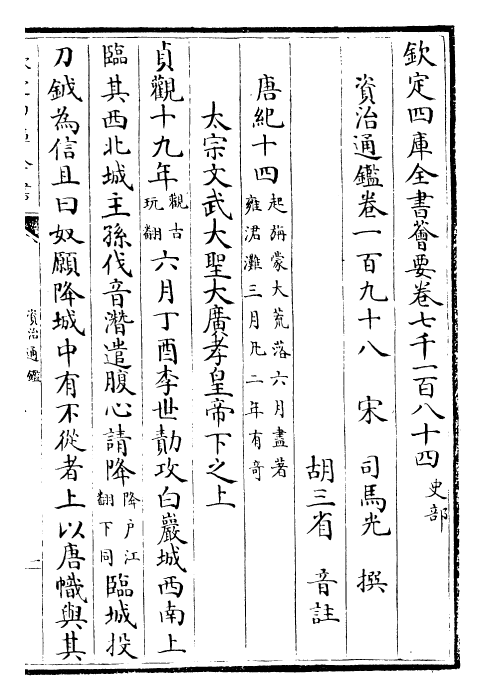 欽定四庫全書薈要卷七千一百八十四 史部
資治通鑑卷一百九十八 宋 司馬光 撰
胡三省 音註
唐紀十四 起旃蒙大荒落六月盡著雍涒灘三月凡二年有奇
太宗文武大聖大廣孝皇帝下之上
貞觀十九年 觀古玩翻 六月丁酉李世勣攻白巖城西南上
臨其西北城主孫伐音潛遣腹心請降 降户江翻下同 臨城投
刀鉞為信且曰奴願降城中有不從者上以唐幟與其
資治通鑑
一